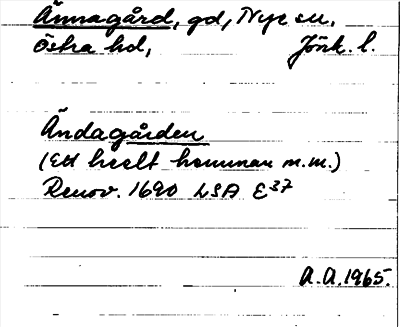 Ännagård, gd, Nye sn,
Östra hd, Jönk. l.
Ändagården
(Ett heelt hemman m.m.)
Renov. 1690 LSA E37
A.A. 1965.